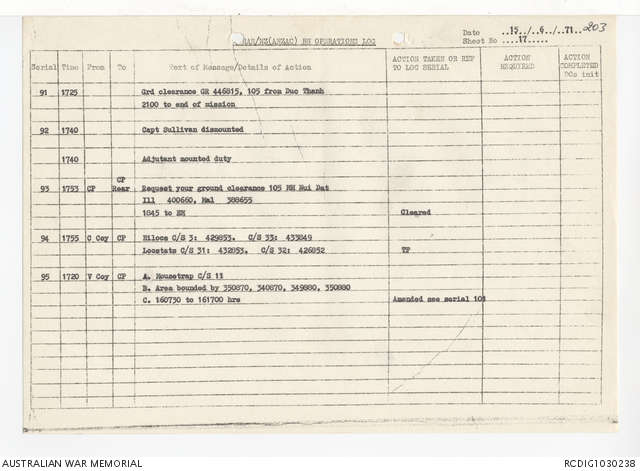 RAR/NZ(ANZAC) BN OPERATIONS LOG
Date 15/6/71 203
Sheet No 17
Serial Time From To Port of Message/Details of Action ACTION TAKEN OR REF TO LOG SERIAL ACTION REQUIRED ACTION COMPLETED DOs init
91 1725 Grd clearance GR 446815, 105 from Duc Thanh
2100 to end of mission
92 1740 Capt Sullivan dismounted
1740 Adjutant mounted duty
93 1753 CP CP Rear Request your ground clearance 105 HH Nui Dat
Ill 400660, Mal 388655
1845 to EM Cleared
94 1755 C Coy CP Hilocs C/S 3: 429853. C/S 33: 433849
Locstats C/S 31: 432853. C/S 32: 426852 TP
95 1720 V Coy CP A. Mousetrap C/S 11
B. Area bounded by 350870, 340870, 349880, 350880
C. 160730 to 161700 hrs Amended see serial 101
AUSTRALIAN WAR MEMORIAL
RCDIG1030238